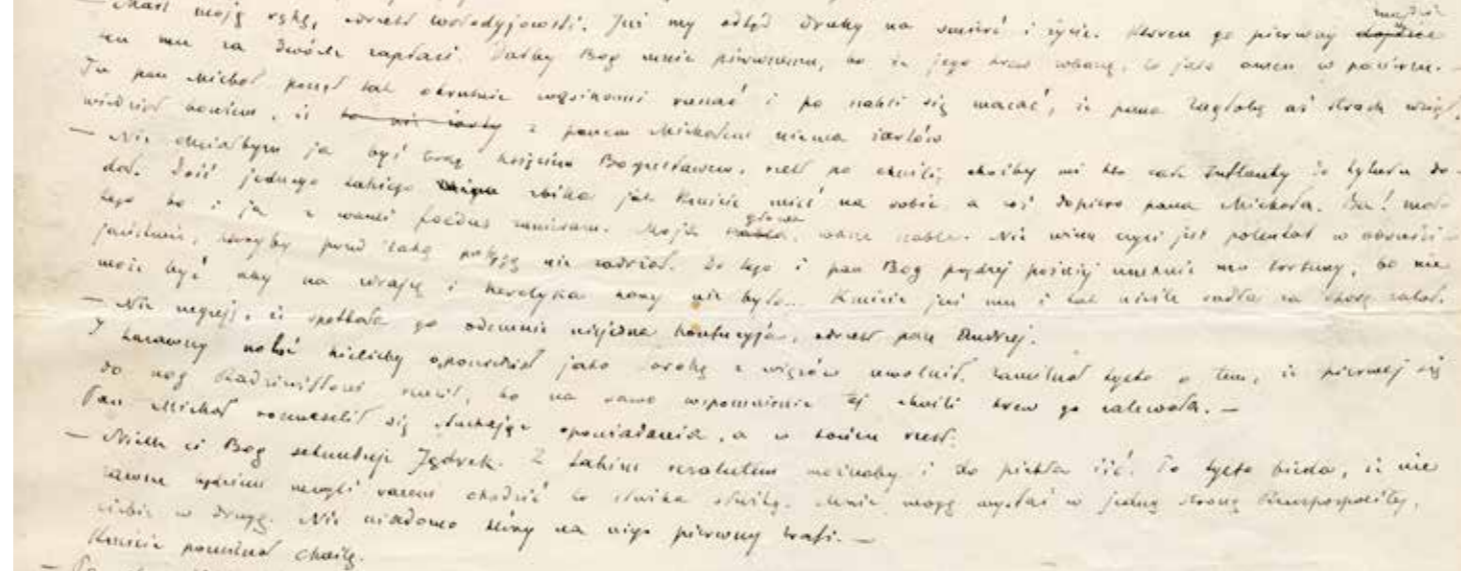 — Masz moję rękę, odrzekł Wołodyjowski. Już my odtąd druhy na śmierć i życie. Któren go pierwszy znajdzie
ten mu za dwóch zapłaci. Dałby Bóg mnie pierwszemu, bo że jego krew wtoczę, to jako amen w pacierzu. —
Tu pan Michał począł tak okrutnie wąsikami ruszać i po szabli się macać, że pana Zagłobę aż strach wziął,
wiedział bowiem, iż to nie żarty z panem Michałem niema żartów
— Nie chciałbym ja być teraz księciem Bogusławem, rzekł po chwili, choćby mi kto całe Inflanty do tytułu do-
dał. Dość jednego takiego żbika jak Kmicic mieć na sobie, a cóż dopiero pana Michała. Ba! mało
tego bo i ja z wami foedus zawieram. Moja szabla głowa, wasze szable. Nie wiem czyli jest potentat w chrześci-
jaństwie, któryby przed taką potęgą nie zadrżał. Do tego i pan Bóg prędzej później umknie mu fortuny, bo nie
może być aby na zdrajcę i heretyka kary nie było... Kmicic już mu i tak nieźle sadła za skórę zalał.
— Nie neguję, iż spotkała go odemnie niejedna konfuzyja, odrzekł pan Andrzej.
I kazawszy nalać kielichy opowiedział jako Sorokę z więzów uwolnił. Zamilczał tylko o tem, iż pierwej się
do nóg Radziwiłłowi rzucił, bo na samo wspomnienie tej chwili krew go zalewała. —
Pan Michał rozweselił się słuchając opowiadania, a w końcu rzekł:
— Niech ci Bóg sekunduje Jędrek. Z takim rezolutem możnaby i do piekła iść. To tylko bieda, iż nie
zawsze będziem mogli razem chodzić bo służba służbą. Mnie mogą wysłać w jedną stronę Rzeczpospolitej,
ciebie w drugą. Nie wiadomo który na niego pierwszy trafi. —
Kmicic pomilczał chwilę.